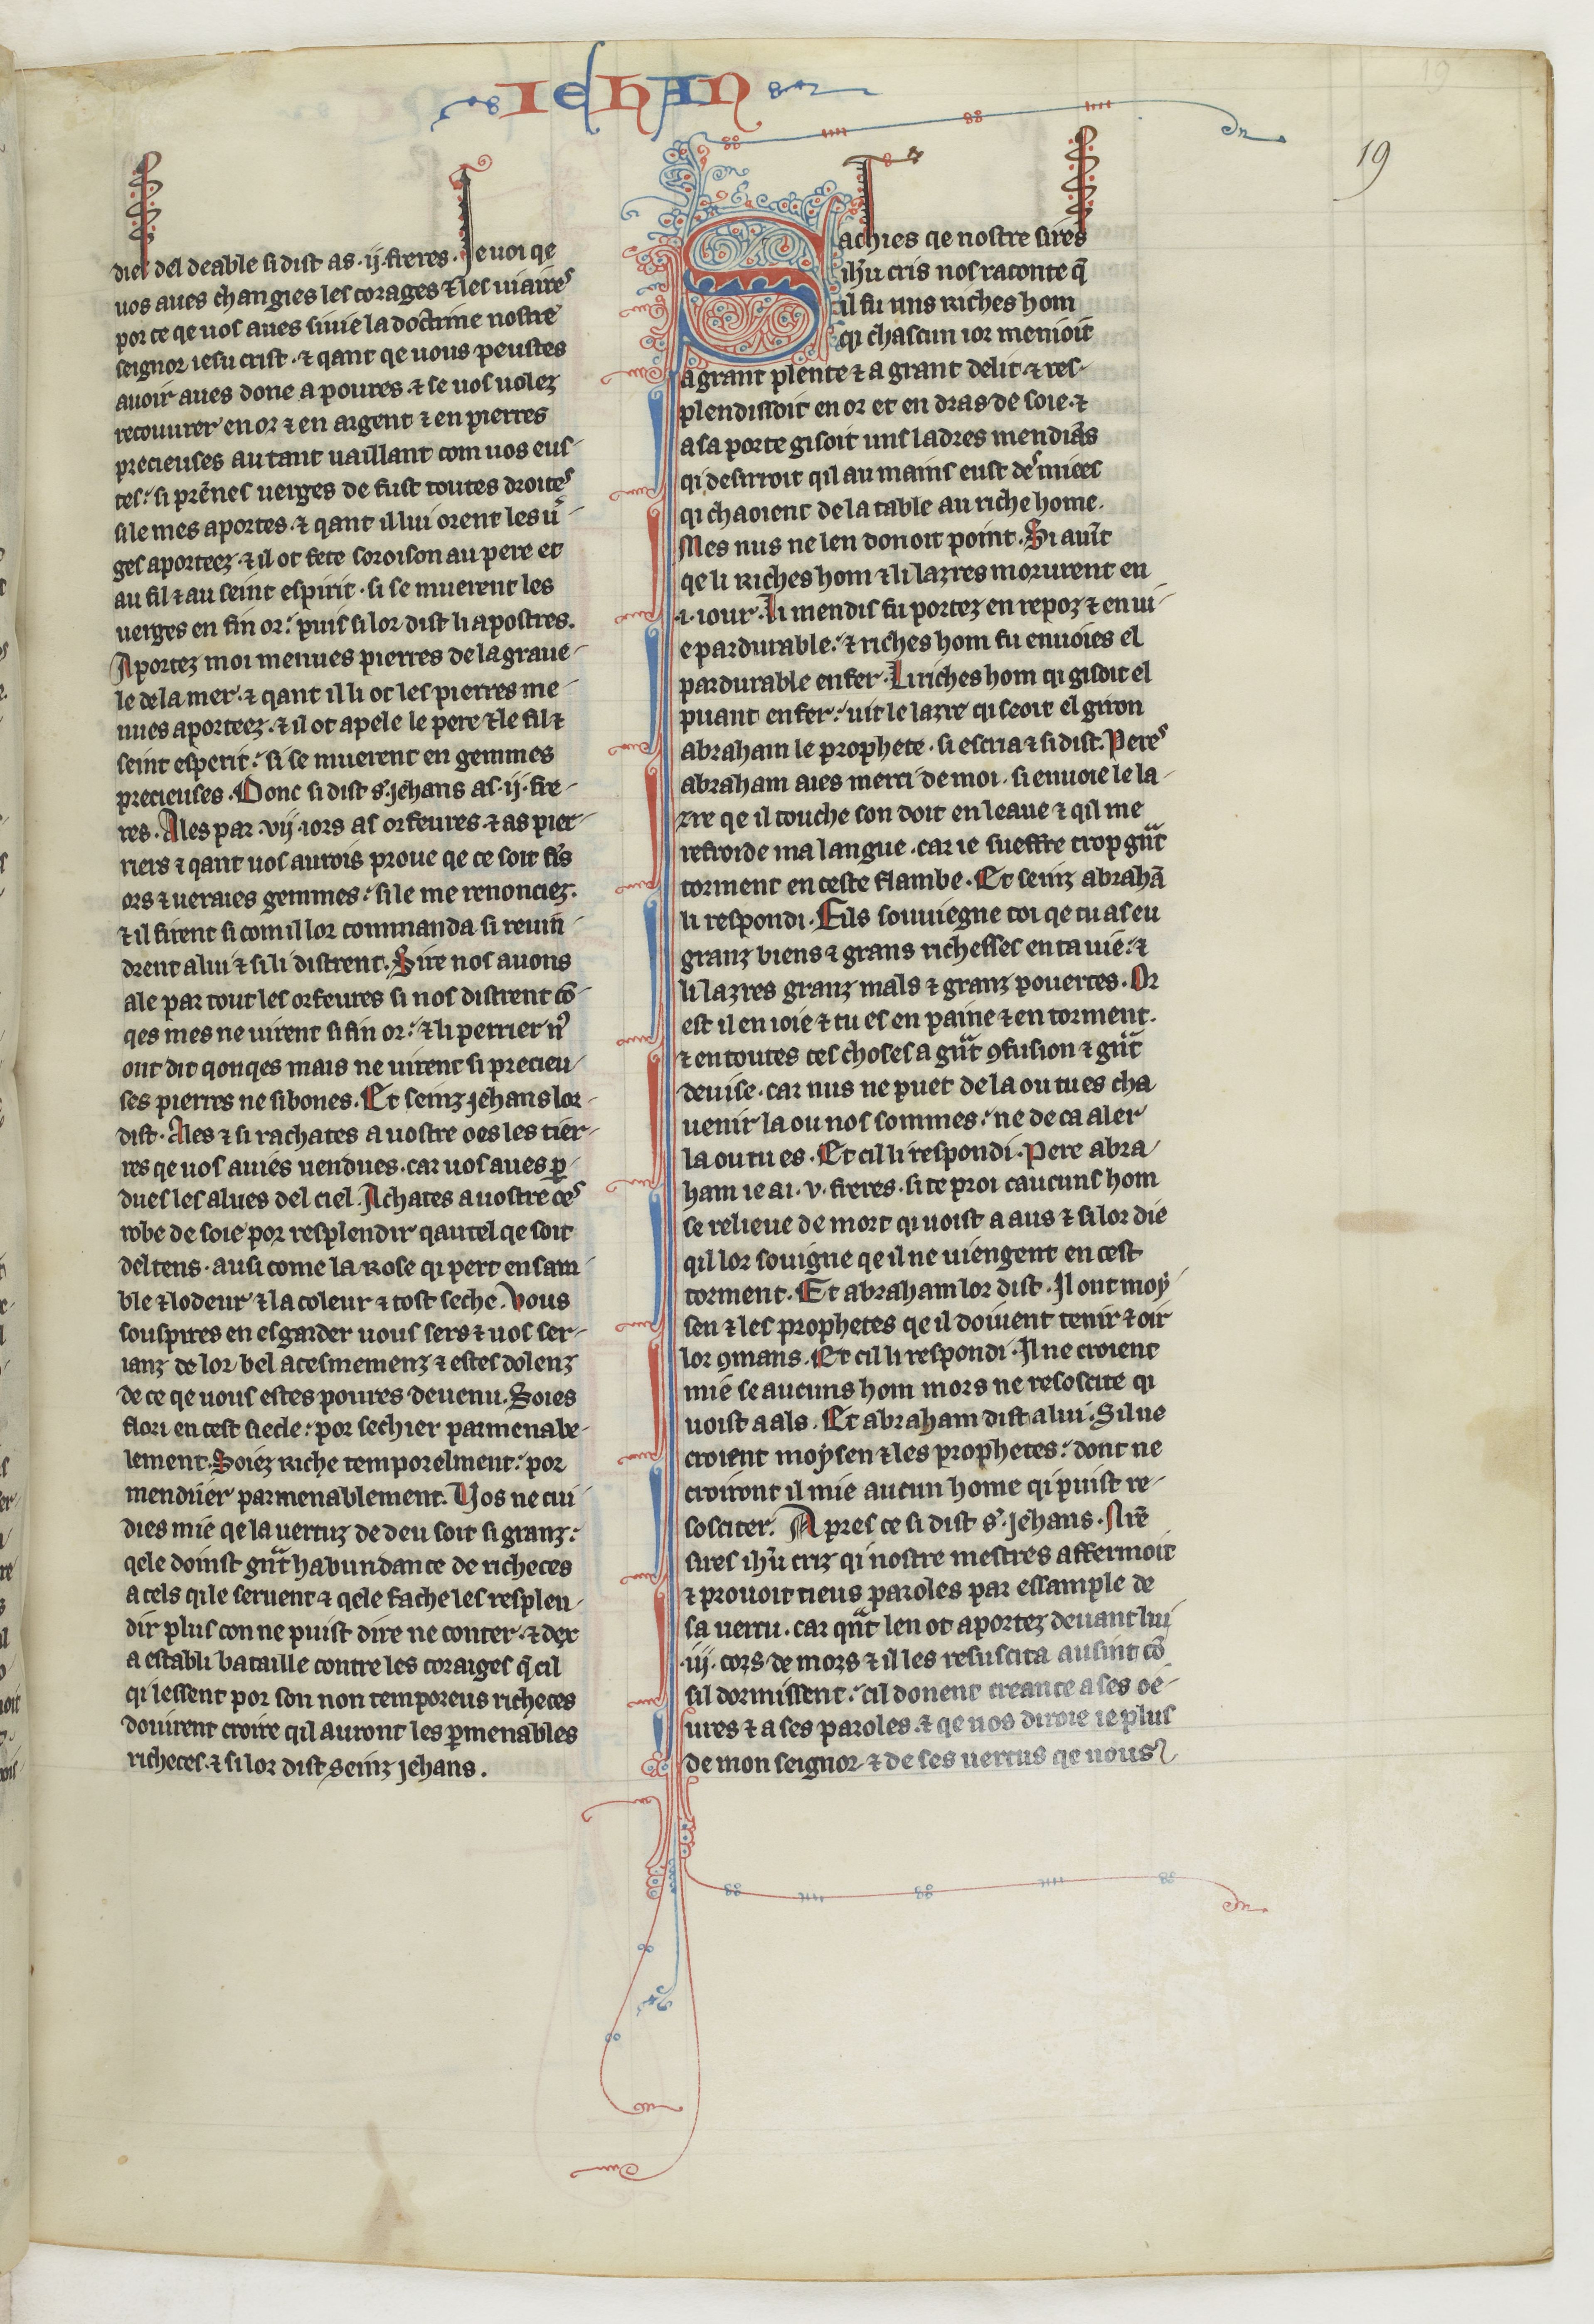 IEHAN
19
19
dies del deable si dist as .ij. freres. Je uoi qe
uos aues changies les corages ⁊ les uiaires
por ce qe uos aues siuie la doctrine nostre
seignor iesu crist. ⁊ qant qe uous peustes
auoir aues done a poures. ⁊ se uos uolez
recouurer en or ⁊ en argent ⁊ en pierres
precieuses autant uaillant com uos eus-
tes: si prēnes uerges de fust toutes droites
si le mes aportes. ⁊ qant il lui orent les u̾-
ges aporteez. ⁊ il ot fete soroison au pere et
au fil ⁊ au seint espirit. si se muerent les
uerges en fin or: puis si lor dist li apostres.
Aportez moi menues pierres de la graue-
le de la mer. ⁊ qant il li ot les pierres me-
nues aporteez. ⁊ il ot apele le pere ⁊ le fil ⁊
seint esperit: si se muerent en gemmes
precieuses. Donc si dist s. jehans as .ij. fre-
res. Ales par .vij. iors as orfeures. ⁊ as pier-
riers ⁊ qant uos aurois proue qe ce soit fis
ors ⁊ ueraies gemmes: si le me renonciez.
⁊ il firent si com il lor commanda si reuin̄
drent a lui ⁊ si li distrent. Sire nos auons
ale par tout les orfeures si nos distrent cō-
qes mes ne uirent si fin or: ⁊ li perrier n̾
ont dit qonqes mais ne uirent si precieu-
ses pierres ne si bones. Et seinz jehans lor-
dist. Ales ⁊ si rachates a uostre oes les tier-
res qe uos auies uendues. car uos aues ꝑ-
dues les alues del ciel. Achates a uostre oes
robe de soie por resplendir qautel qe soit
del tens. ausi come la Rose qi pert ensam-
ble ⁊ lodeur ⁊ la coleur ⁊ tost seche. Vous
souspires en esgarder uous sers ⁊ uos ser-
ianz de lor bel acesmemenz ⁊ estes dolenz
de ce qe uous estes poures deuenu. Soies
flori en cest siecle: por sechier parmenabe-
lement. Soiez Riche temporelment: por
mendiier parmenablement. Vos ne cui-
dies mie qe la uertuz de deu soit si granz:
qele doinst gnt habundance de richeces
a cels qi le seruent ⁊ qele fache les resplen-
dir plus con ne puist dire ne conter. ⁊ dex
a establi bataille contre les coraiges q̄ cil
qi lessent por son non temporeus richeces
douirent croire qil auront les ꝑmenables
richeces. ⁊ si lor dist seinz jehans.
Sachies qe nostre sires
ih̄u cris nos raconte q̄
il fu uns Riches hom
qi chascun ior menioit
a grant plente ⁊ a grant delit. ⁊ res-
plendissoit en or et en dras de soie. ⁊
a sa porte gisoit uns ladres mendiās
qi desirroit qil au mains eust des miees
qi chaoient de la table au riche home.
Mes nus ne len donoit point. Si auīt
qe li Riches hom ⁊ li lazres morurent en
.i. iour. Li mendis fu portez en repoz ⁊ en ui-
e pardurable: ⁊ riches hom fu enuoies el
pardurable enfer. Li riches hom qi gisoit el
puant enfer: uit le lazre qi seoit el giron
abraham le prophete. si escria ⁊ si dist. Peres
abraham aies merci de moi. si enuoie le la-
zre qe il touche son doit en leaue ⁊ qil me
refroide ma langue. car ie sueffre trop gnt
torment en ceste flambe. Et seinz abrahā
li respondi. Fils souuiegne toi qe tu as eu
granz biens ⁊ grans richesses en ta uie: ⁊
li lazres granz mals ⁊ granz pouertes. Or
est il en ioie ⁊ tu es en paine ⁊ en torment.
⁊ en toutes ces choses a gnt ꝯfusion ⁊ gnt
deuise. car nus ne puet de la ou tu es cha
uenir la ou nos sommes: ne de ca aler
la ou tu es. Et cil li respondi. Pere abra-
ham ie ai .v. freres. si te proi caucuns hom
se relieue de mort qi uoist a aus ⁊ si lor die
qil lor souigne qe il ne uiengent en cest
torment. Et abraham lor dist. Il ont moy-
sen ⁊ les prophetes qe il doiuent tenir ⁊ oir
lor ꝯmans. Et cil li respondi. Il ne croient
mie se aucuns hom mors ne resoscite qi
uoist a als. Et abraham dist a lui. Sil ne
croient moysen ⁊ les prophetes: dont ne
croiront il mie aucun home qi puist re-
sosciter. Apres ce si dist s. jehans. Nr̄e
sires ih̄u criz qi nostre mestres affermoit
⁊ prouoit tieus paroles par essample de
sa uertu. car qnt len ot aportez deuant lui
.iij. cors de mors ⁊ il les resuscita ausint cō
sil dormissent: cil donent creance a ses oe-
ures ⁊ a ses paroles. ⁊ qe nos diroie ie plus
de mon seignor ⁊ de ses uertus qe uous